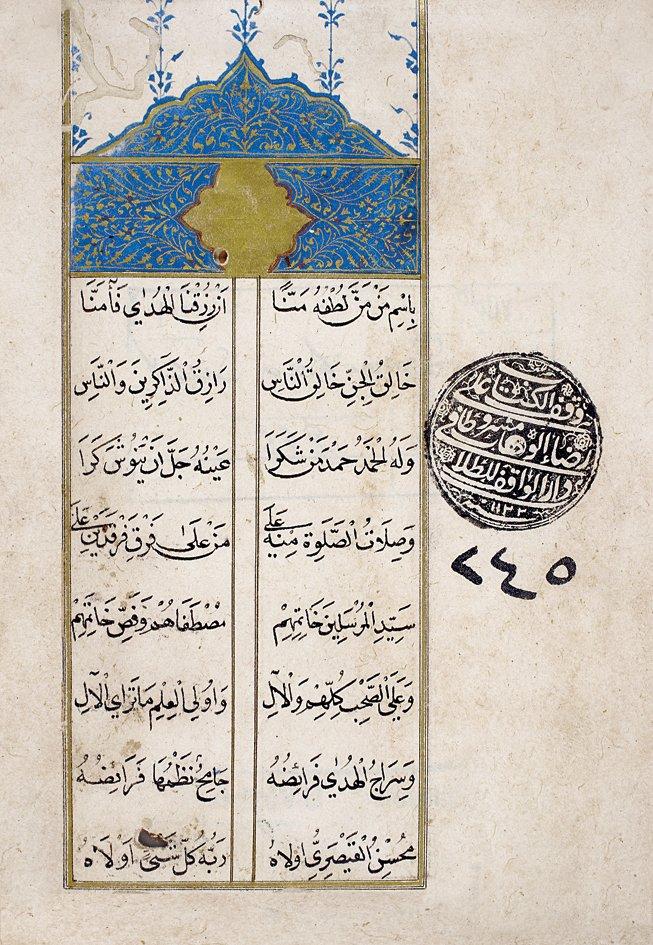 بِاسْمِ مَنْ مَنَّ لُطْفُهُ مَنًّا اَنْ رُزِقْنَا الْهُدٰي فَآمَنَّا
خَالِقُ الْجِنِّ خَالِقُ النَّاسِ رَازِقُ الذَّاكِرِينَ وَالنَّاسِ
وَلَهُ الْحَمْدُ حَمْدَ مَنْ شَكَرَا عَيْنُهُ جَلَّ اَنْ يَنُوشَ كَرَا
وَصِلَاتُ الصَّلٰوةِ مِنْهُ عَلَى مَنْ عَلَىٰ فَرْقِ فَرْقَدَيْنِ عَلَى
سَيِّدِ الْمُرْسَلِينَ خَاتِمِهِمْ مُصْطَفَاهُمْ وَفَصِّ خَاتَمِهِمْ
وَعَلَى الصَّحْبِ كُلِّهِمْ وَالْآلِ وَاُولِي الْعِلْمِ مَا الْآلِ
وَسِرَاجُ الْهُدٰي فَرَائِضُهُ جَامِعٌ نَظْمُهَا فَرَائِضُهُ
مُحْسِنُ الْقَيْصَرِيُّ اَوْلَاهُ رَبُّهُ كُلَّ شَيْءٍ اَوْلَاهُ
وقف الكتاب
٢٤٥